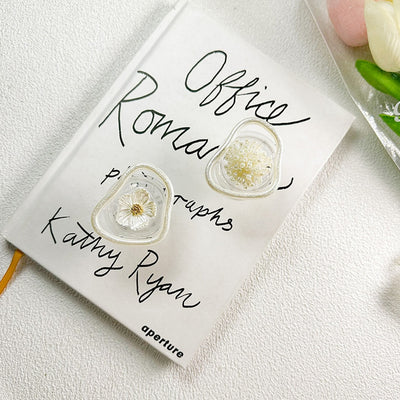 Office
Roma
p graphs
Kathy Ryan
aperture